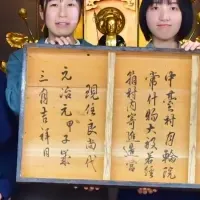 中臺村月輪院
常什物大般若経
箱村内寄進宮
現住良尚代
元治元甲子歳
三月吉祥日